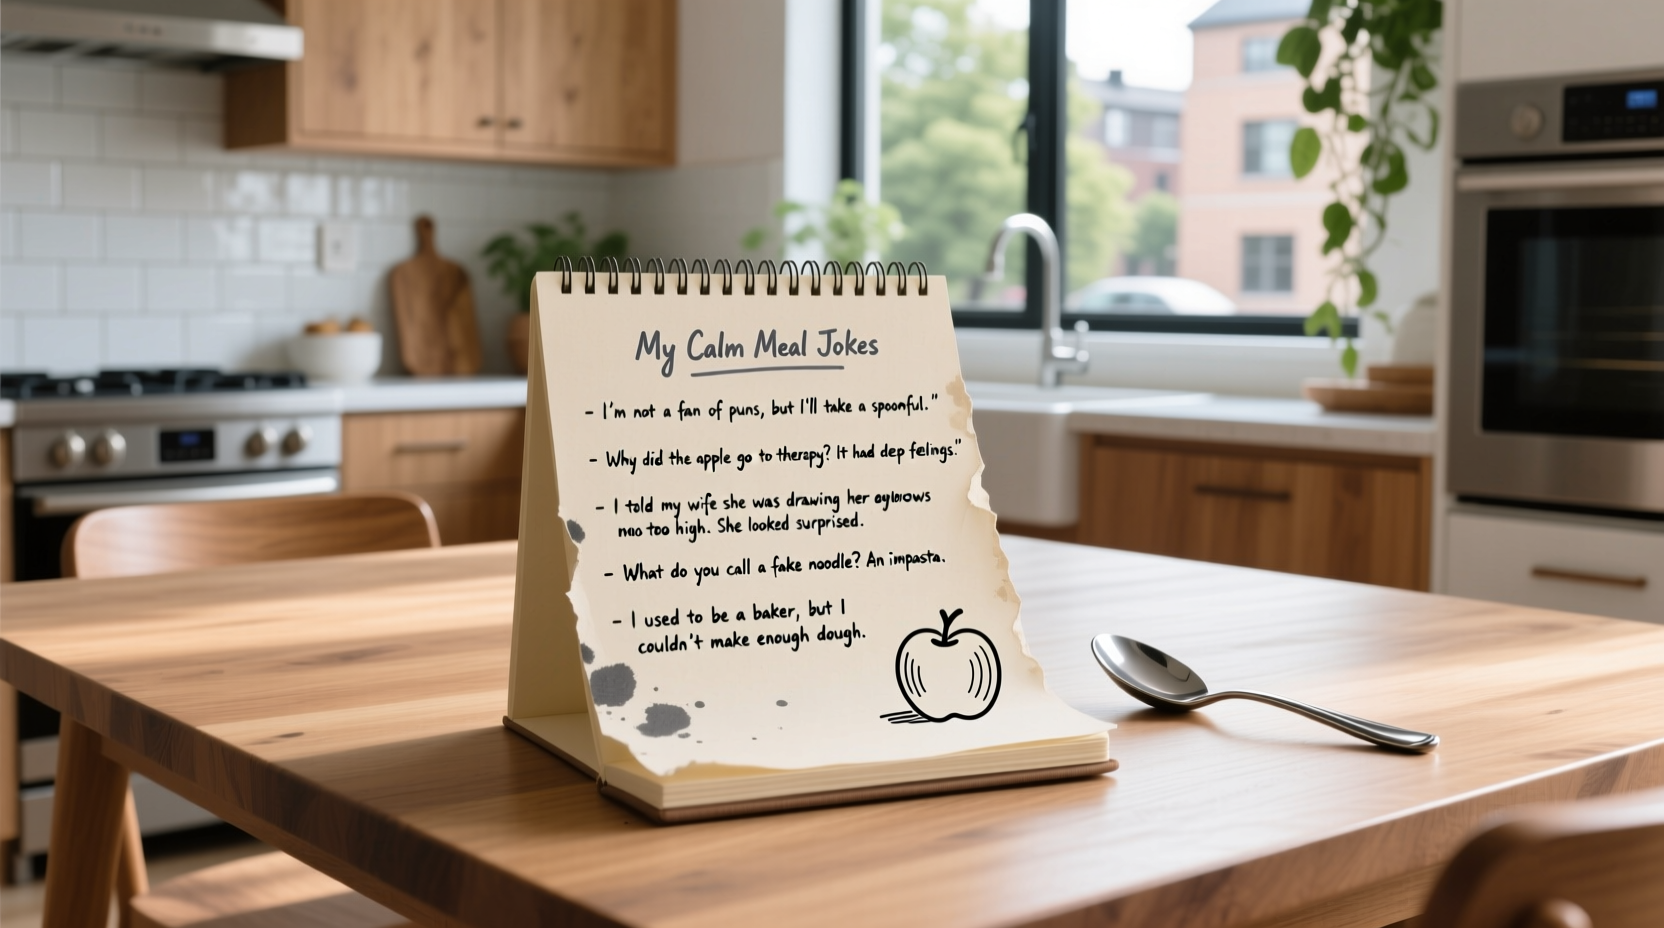 My Calm Meal Jokes
- I'm not a fan of puns, but I'll take a spoonful."
- Why did the apple go to therapy? It had dep felings."
- I told my wife she was drawing her
too high. She looked surprised.
- What do you call a fake noodle? An impasta.
- I used to be a baker, but I
couldn't make enough dough.